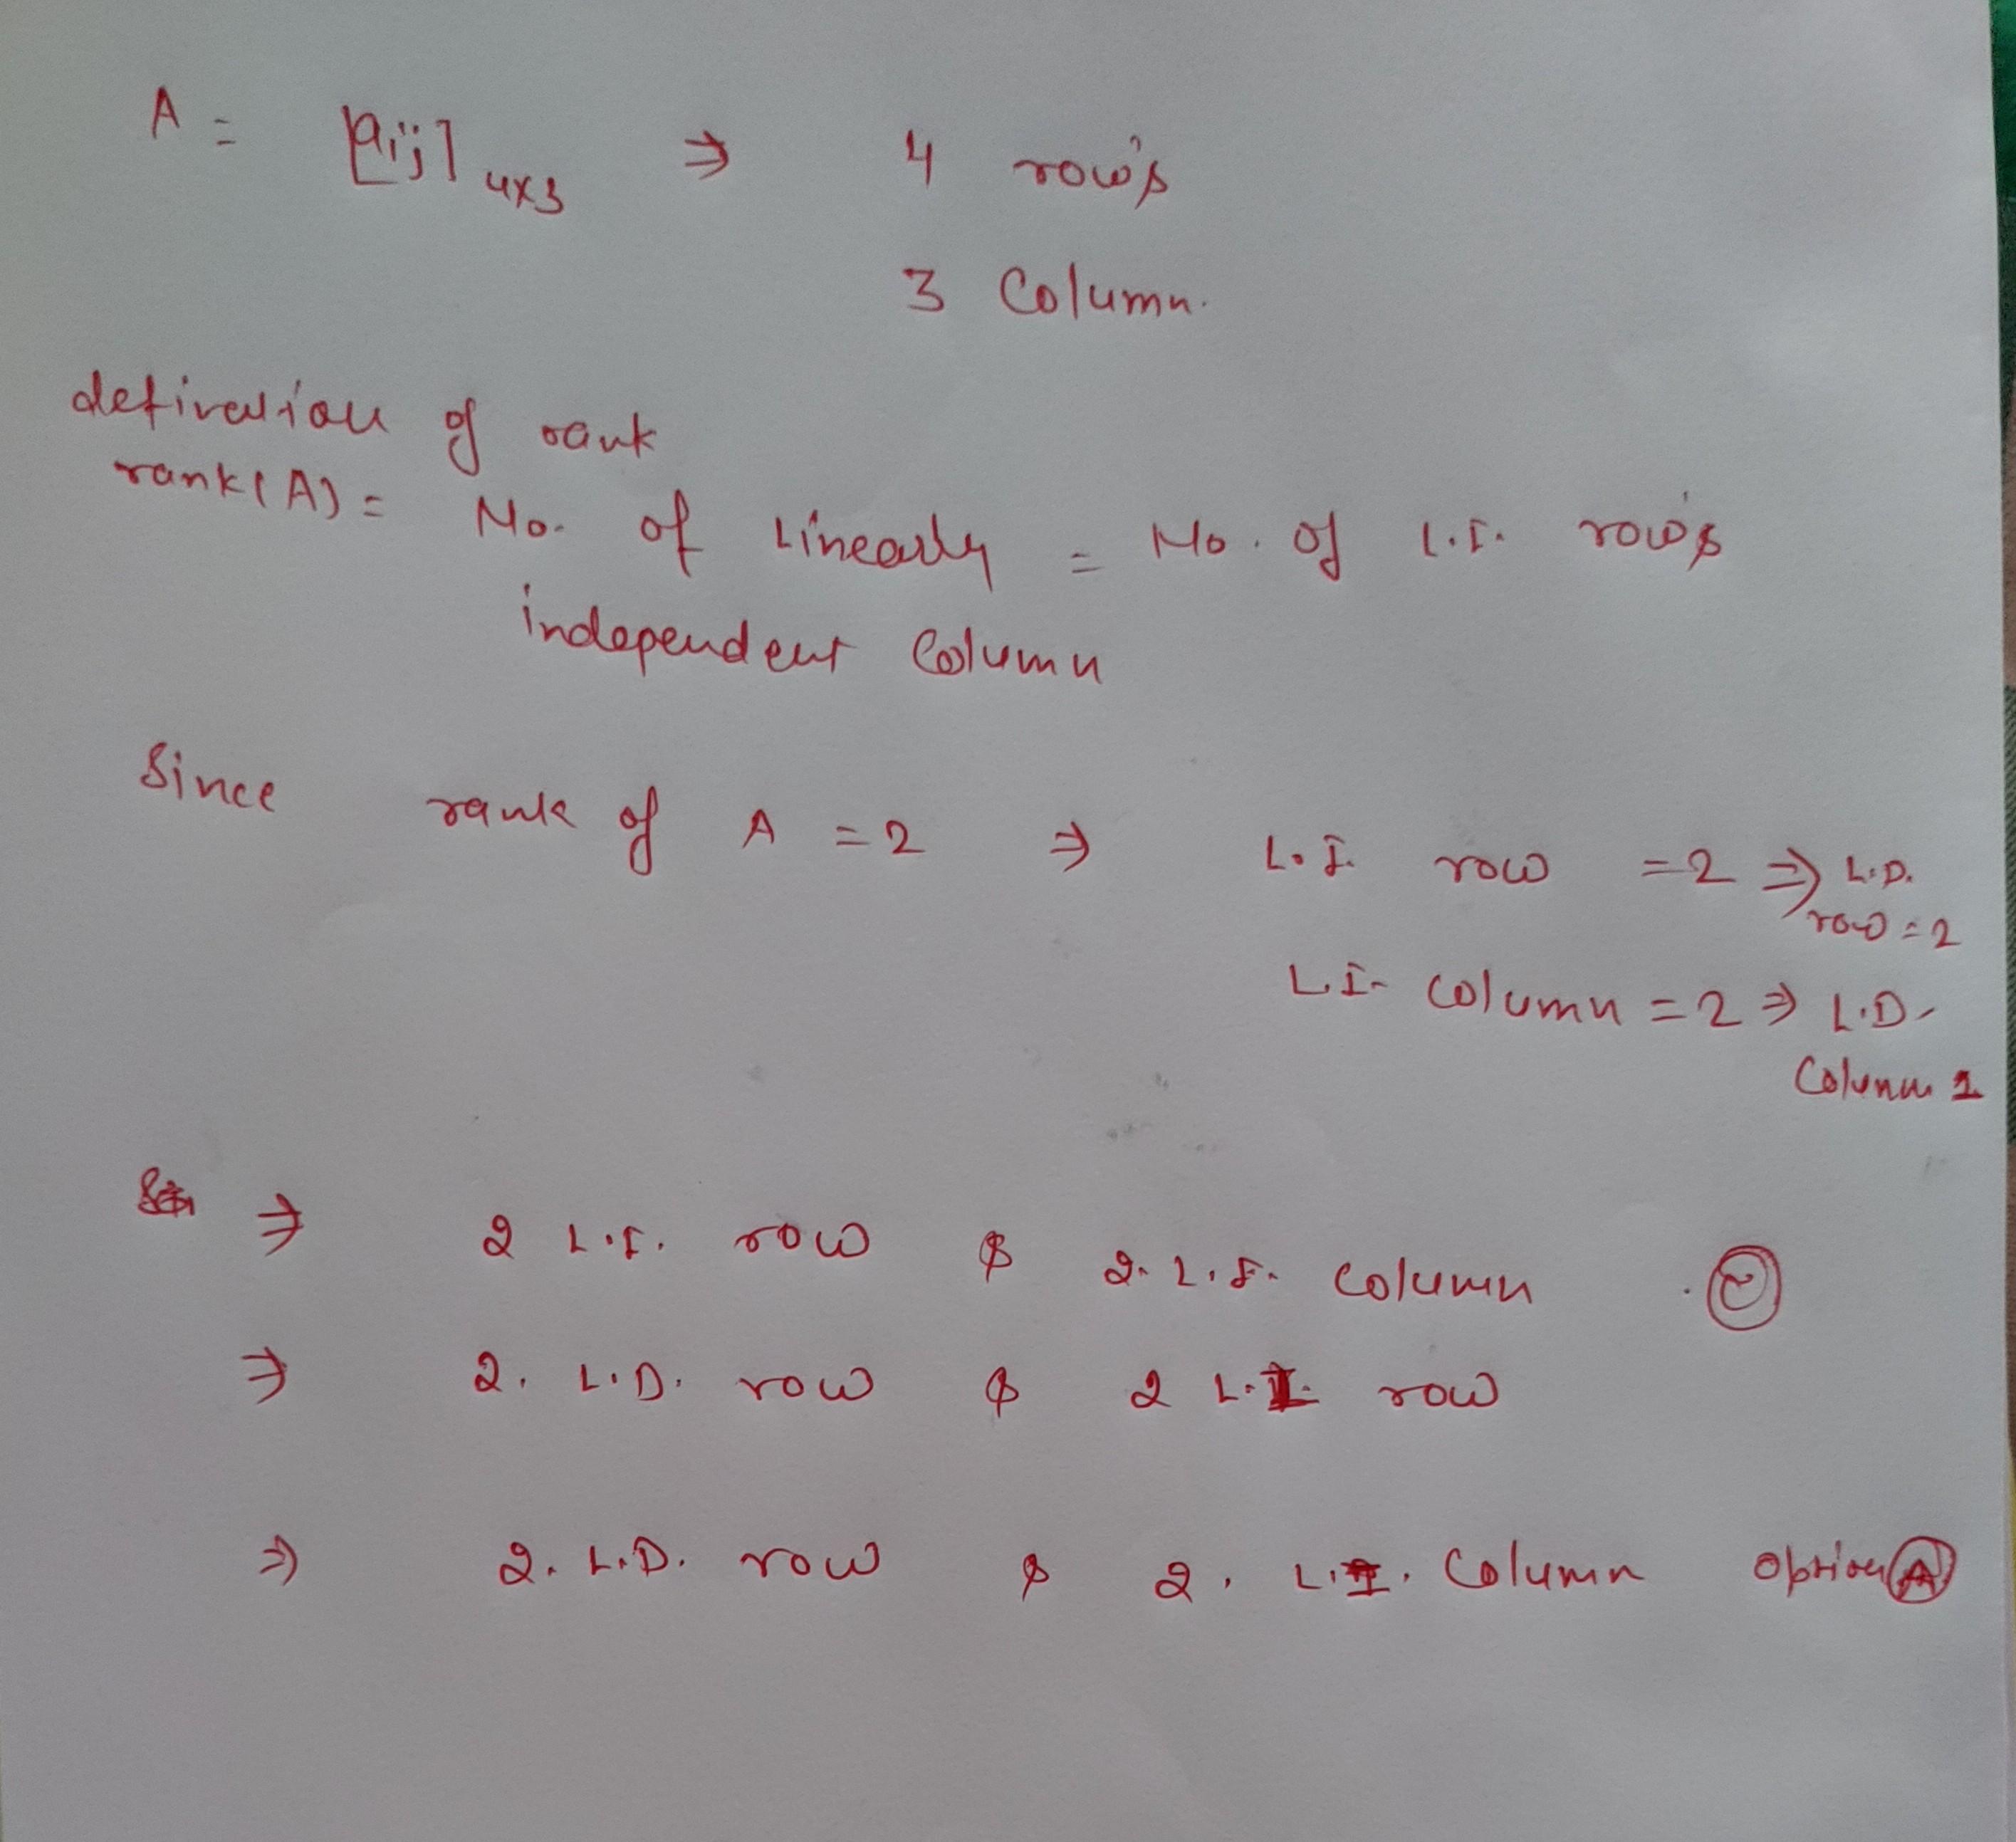 A = [aij] 4x3 ⇒ 4 row's
3 Column.
defination of rank
rank(A) = No. of Linearly = No. of L.I. row's
independent Column
Since rank of A = 2 ⇒ L.I. row = 2 ⇒ L.D.
row = 2
L.I. column = 2 ⇒ L.D.
Column 1
⇒ 2 L.I. row & 2. L.I. column
⇒ 2. L.D. row & 2 L.I. row
⇒ 2. L.D. row & 2. L.I. Column option A